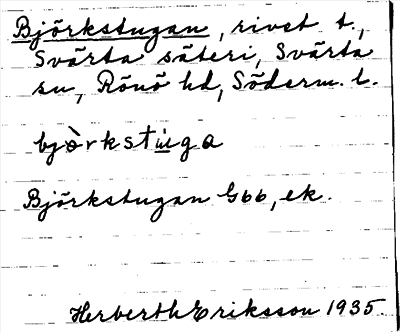 Björkstugan, rivet t.,
Svärta säteri, Svärta
sn, Rönö hd, Söderm. l.
bjò̀rkstuga
Björkstugan G66, ek.
Herberth Eriksson 1935